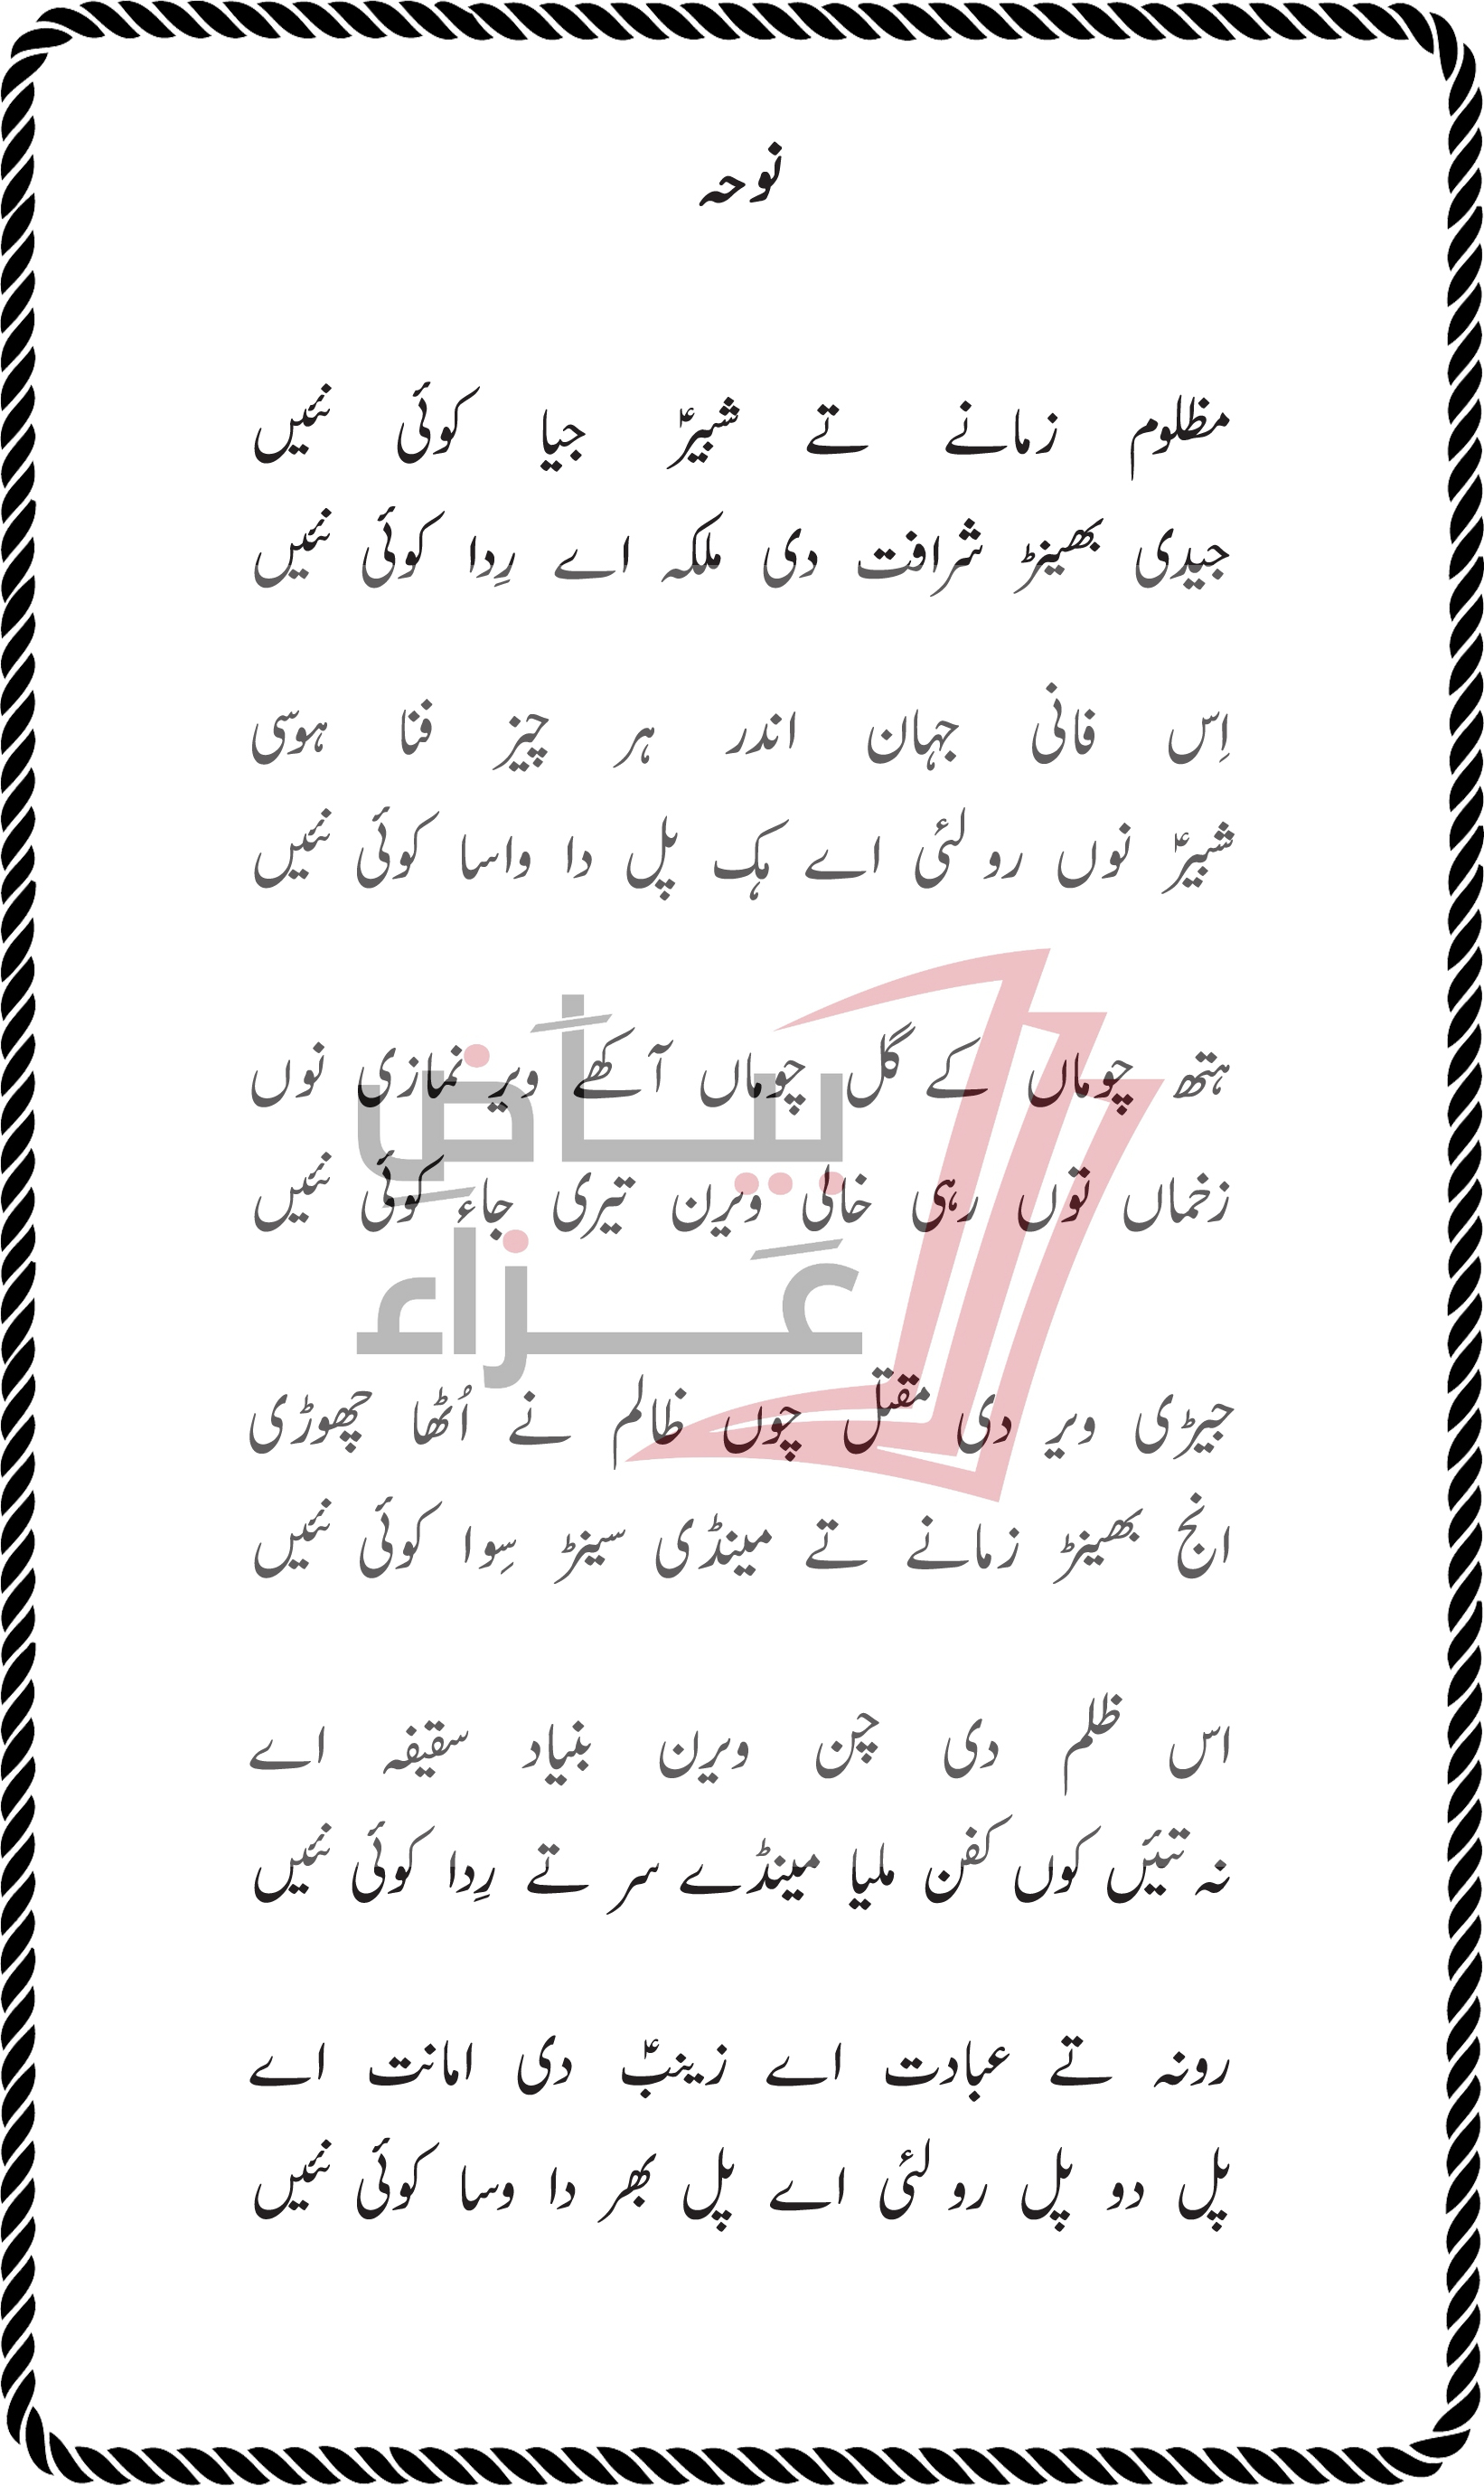 نوحہ
مظلوم زمانے تے شبیرؑ جیا کوئی نئیں
جیدی بھینڑ شرافت دی ملکہ اے رِدا کوئی نئیں
اِس فانی جہان اندر ہر چیز فنا ہوسّی
شبیرؑ نوں رو لئی اے ہک پل دا واسا کوئی نئیں
ہتھ چوماں کے گل چوماں آکھے ویر نمازی نوں
زخماں توں رہی خالی ویرن تیری جاء کوئی نئیں
جیڑی ویر دی مقتل چوں ظالم نے اُٹھا چھوڑی
انج بھینڑ زمانے تے مینڈی سینڑ سِوا کوئی نئیں
اس ظلم دی چن ویرن بنیاد سقیفہ اے
نہ تئیں کوں کفن ملیا مینڈے سر تے رِدا کوئی نئیں
رونہ تے عبادت اے زینبؑ دی امانت اے
پل دو پل رو لئی اے پل بھر دا وسا کوئی نئیں
بیاضِ
عَزاء